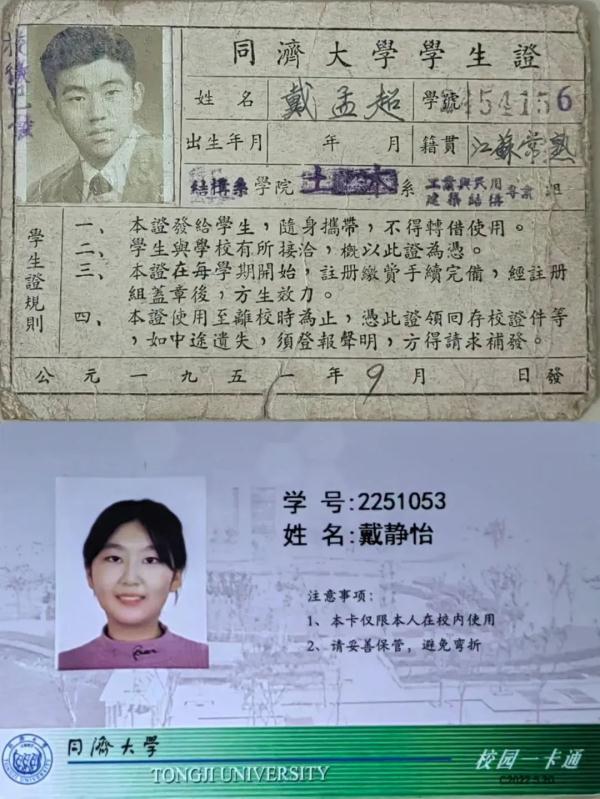 同濟大學學生證
姓名 戴孟超 學號 6
出生年月 年 月 籍貫 江蘇常熟
結構系學院 土木系 工業與民用建築結構專業 組
學生證規則
一、本證發給學生，隨身攜帶，不得轉借使用。
二、學生與學校有所接洽，概以此證為憑。
三、本證在每學期開始，註册繳費手續完備，經註册
組蓋章後，方生效力。
四、本證使用至離校時為止，憑此證領回存校證件等
，如中途遺失，須登報聲明，方得請求補發。
公元一九五一年9月 日發
学 号:2251053
姓 名:戴静怡
注意事项:
1、本卡仅限本人在校内使用
2、请妥善保管，避免弯折
同濟大学
TONGJI UNIVERSITY
校园一卡通